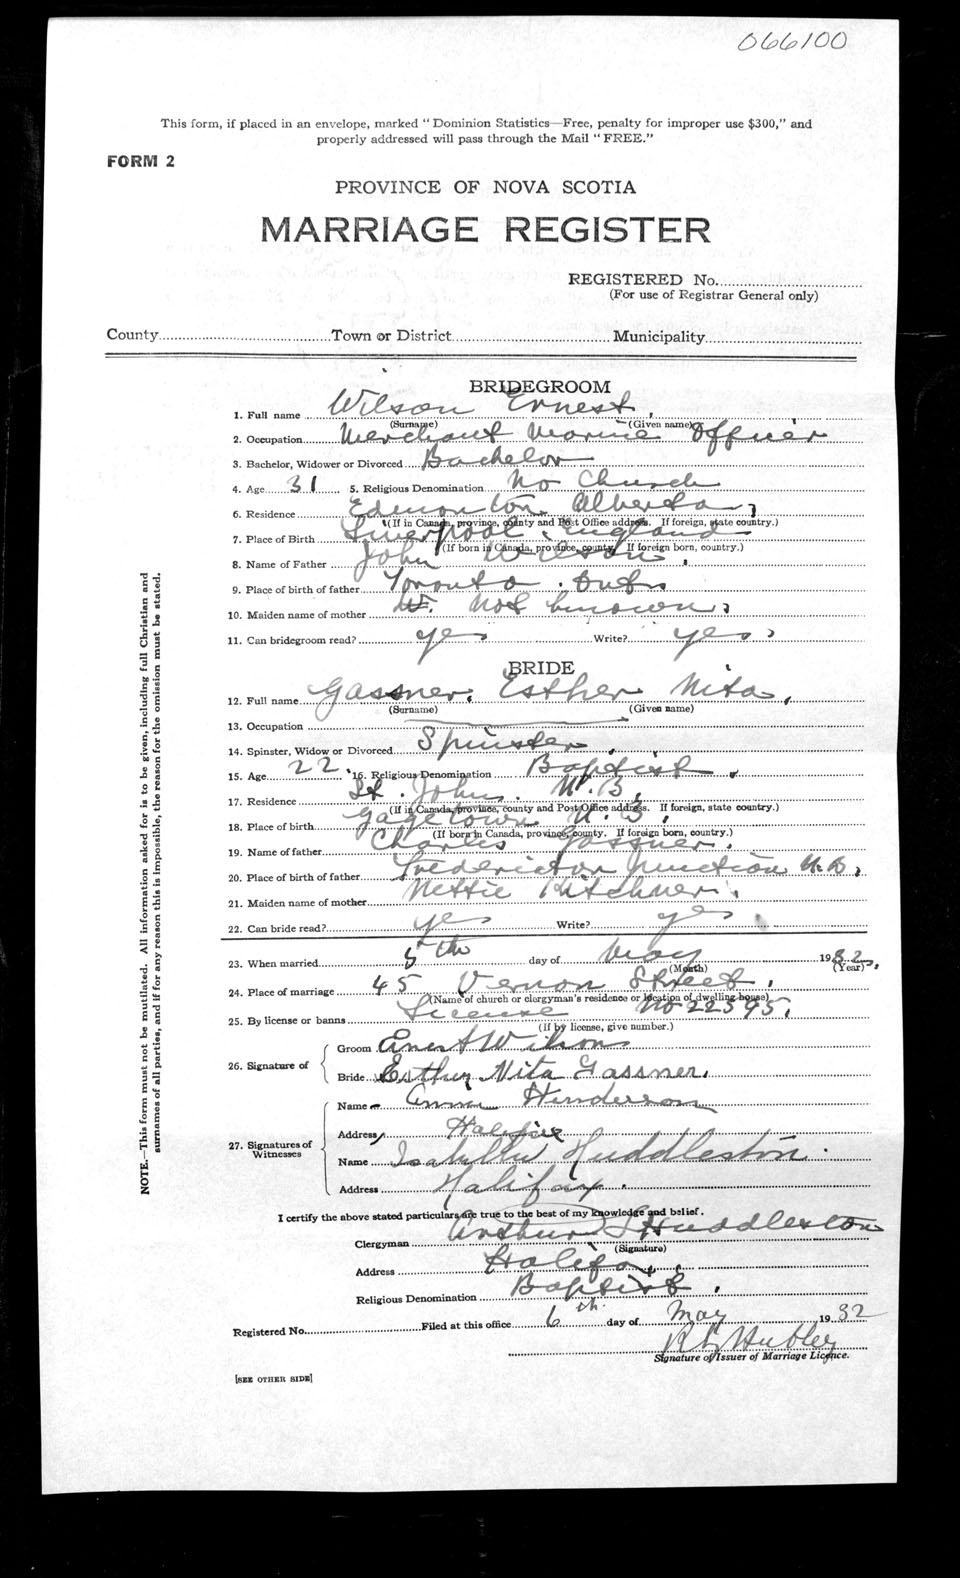 066100
This form, if placed in an envelope, marked "Dominion Statistics—Free, penalty for improper use $300," and
properly addressed will pass through the Mail "FREE."
FORM 2
PROVINCE OF NOVA SCOTIA
MARRIAGE REGISTER
REGISTERED No.
(For use of Registrar General only)
County Town or District Municipality
BRIDEGROOM
1. Full name Wilson Ernest
(Surname) (Given name)
2. Occupation Merchant Marine Officer
3. Bachelor, Widower or Divorced Bachelor
4. Age 31 5. Religious Denomination No Church
6. Residence Edmonton Alberta
(If in Canada, province, county and Post Office address. If foreign, state country.)
7. Place of Birth Liverpool, England
(If born in Canada, province, county. If foreign born, country.)
8. Name of Father John Wilson
9. Place of birth of father Toronto. Ont.
10. Maiden name of mother Not known
11. Can bridegroom read? yes Write? yes
BRIDE
12. Full name Gassner, Esther Nita,
(Surname) (Given name)
13. Occupation
14. Spinster, Widow or Divorced Spinster
15. Age 22 16. Religious Denomination Baptist
17. Residence St. John. N.B.
(If in Canada, province, county and Post Office address. If foreign, state country.)
18. Place of birth Gagetown N.B.
(If born in Canada, province, county. If foreign born, country.)
19. Name of father Charles Gassner.
20. Place of birth of father Fredericton Junction N.B.
21. Maiden name of mother Nettie Kitchner
22. Can bride read? yes Write? yes
23. When married 5th day of May 1932
(Month) (Year)
24. Place of marriage 45 Vernon Street
(Name of church or clergyman's residence or location of dwelling house)
25. By license or banns License No 22595.
(If by license, give number.)
26. Signature of Groom Ernest Wilson
Bride Esther Nita Gassner.
27. Signatures of Witnesses
Name Annie Henderson
Address Halifax
Name Isabella Huddleston
Address Halifax
I certify the above stated particulars are true to the best of my knowledge and belief.
Clergyman Arthur Huddleston
(Signature)
Address Halifax
Religious Denomination Baptist.
Registered No. Filed at this office 6th day of May 1932
Hubley
Signature of Issuer of Marriage Licence.
[SEE OTHER SIDE]
NOTE.—This form must not be mutilated. All information asked for is to be given, including full Christian and
surnames of all parties, and if for any reason this is impossible, the reason for the omission must be stated.